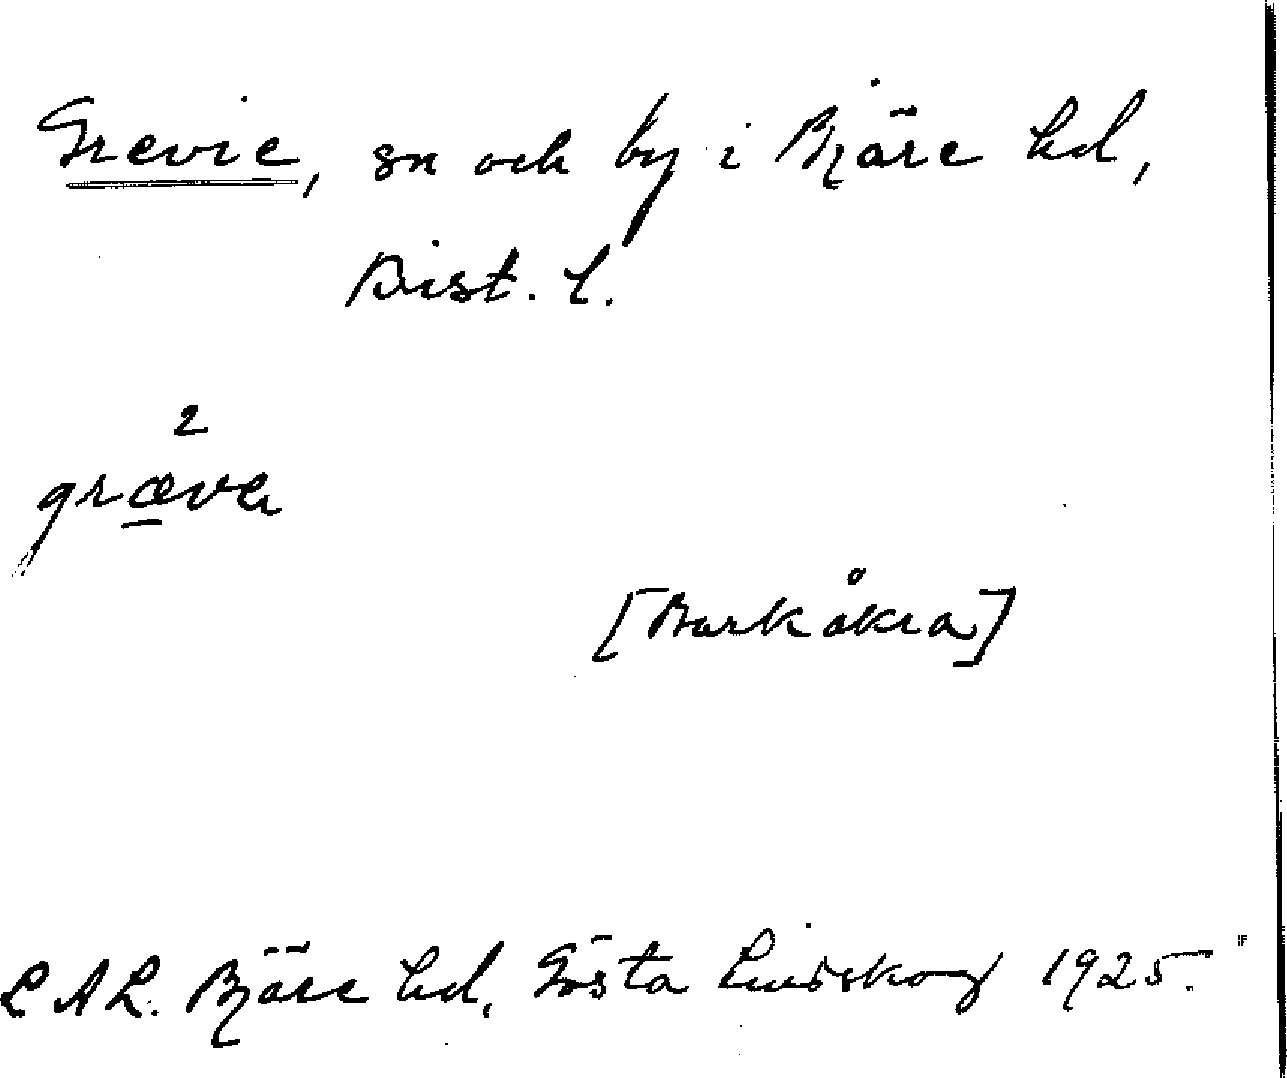 Grevie, sn och by i Bjäre hd,
Krist. l.
2
græva
[Barkåkra]
LAL. Bjäre hd, Gösta Lindskog 1925.